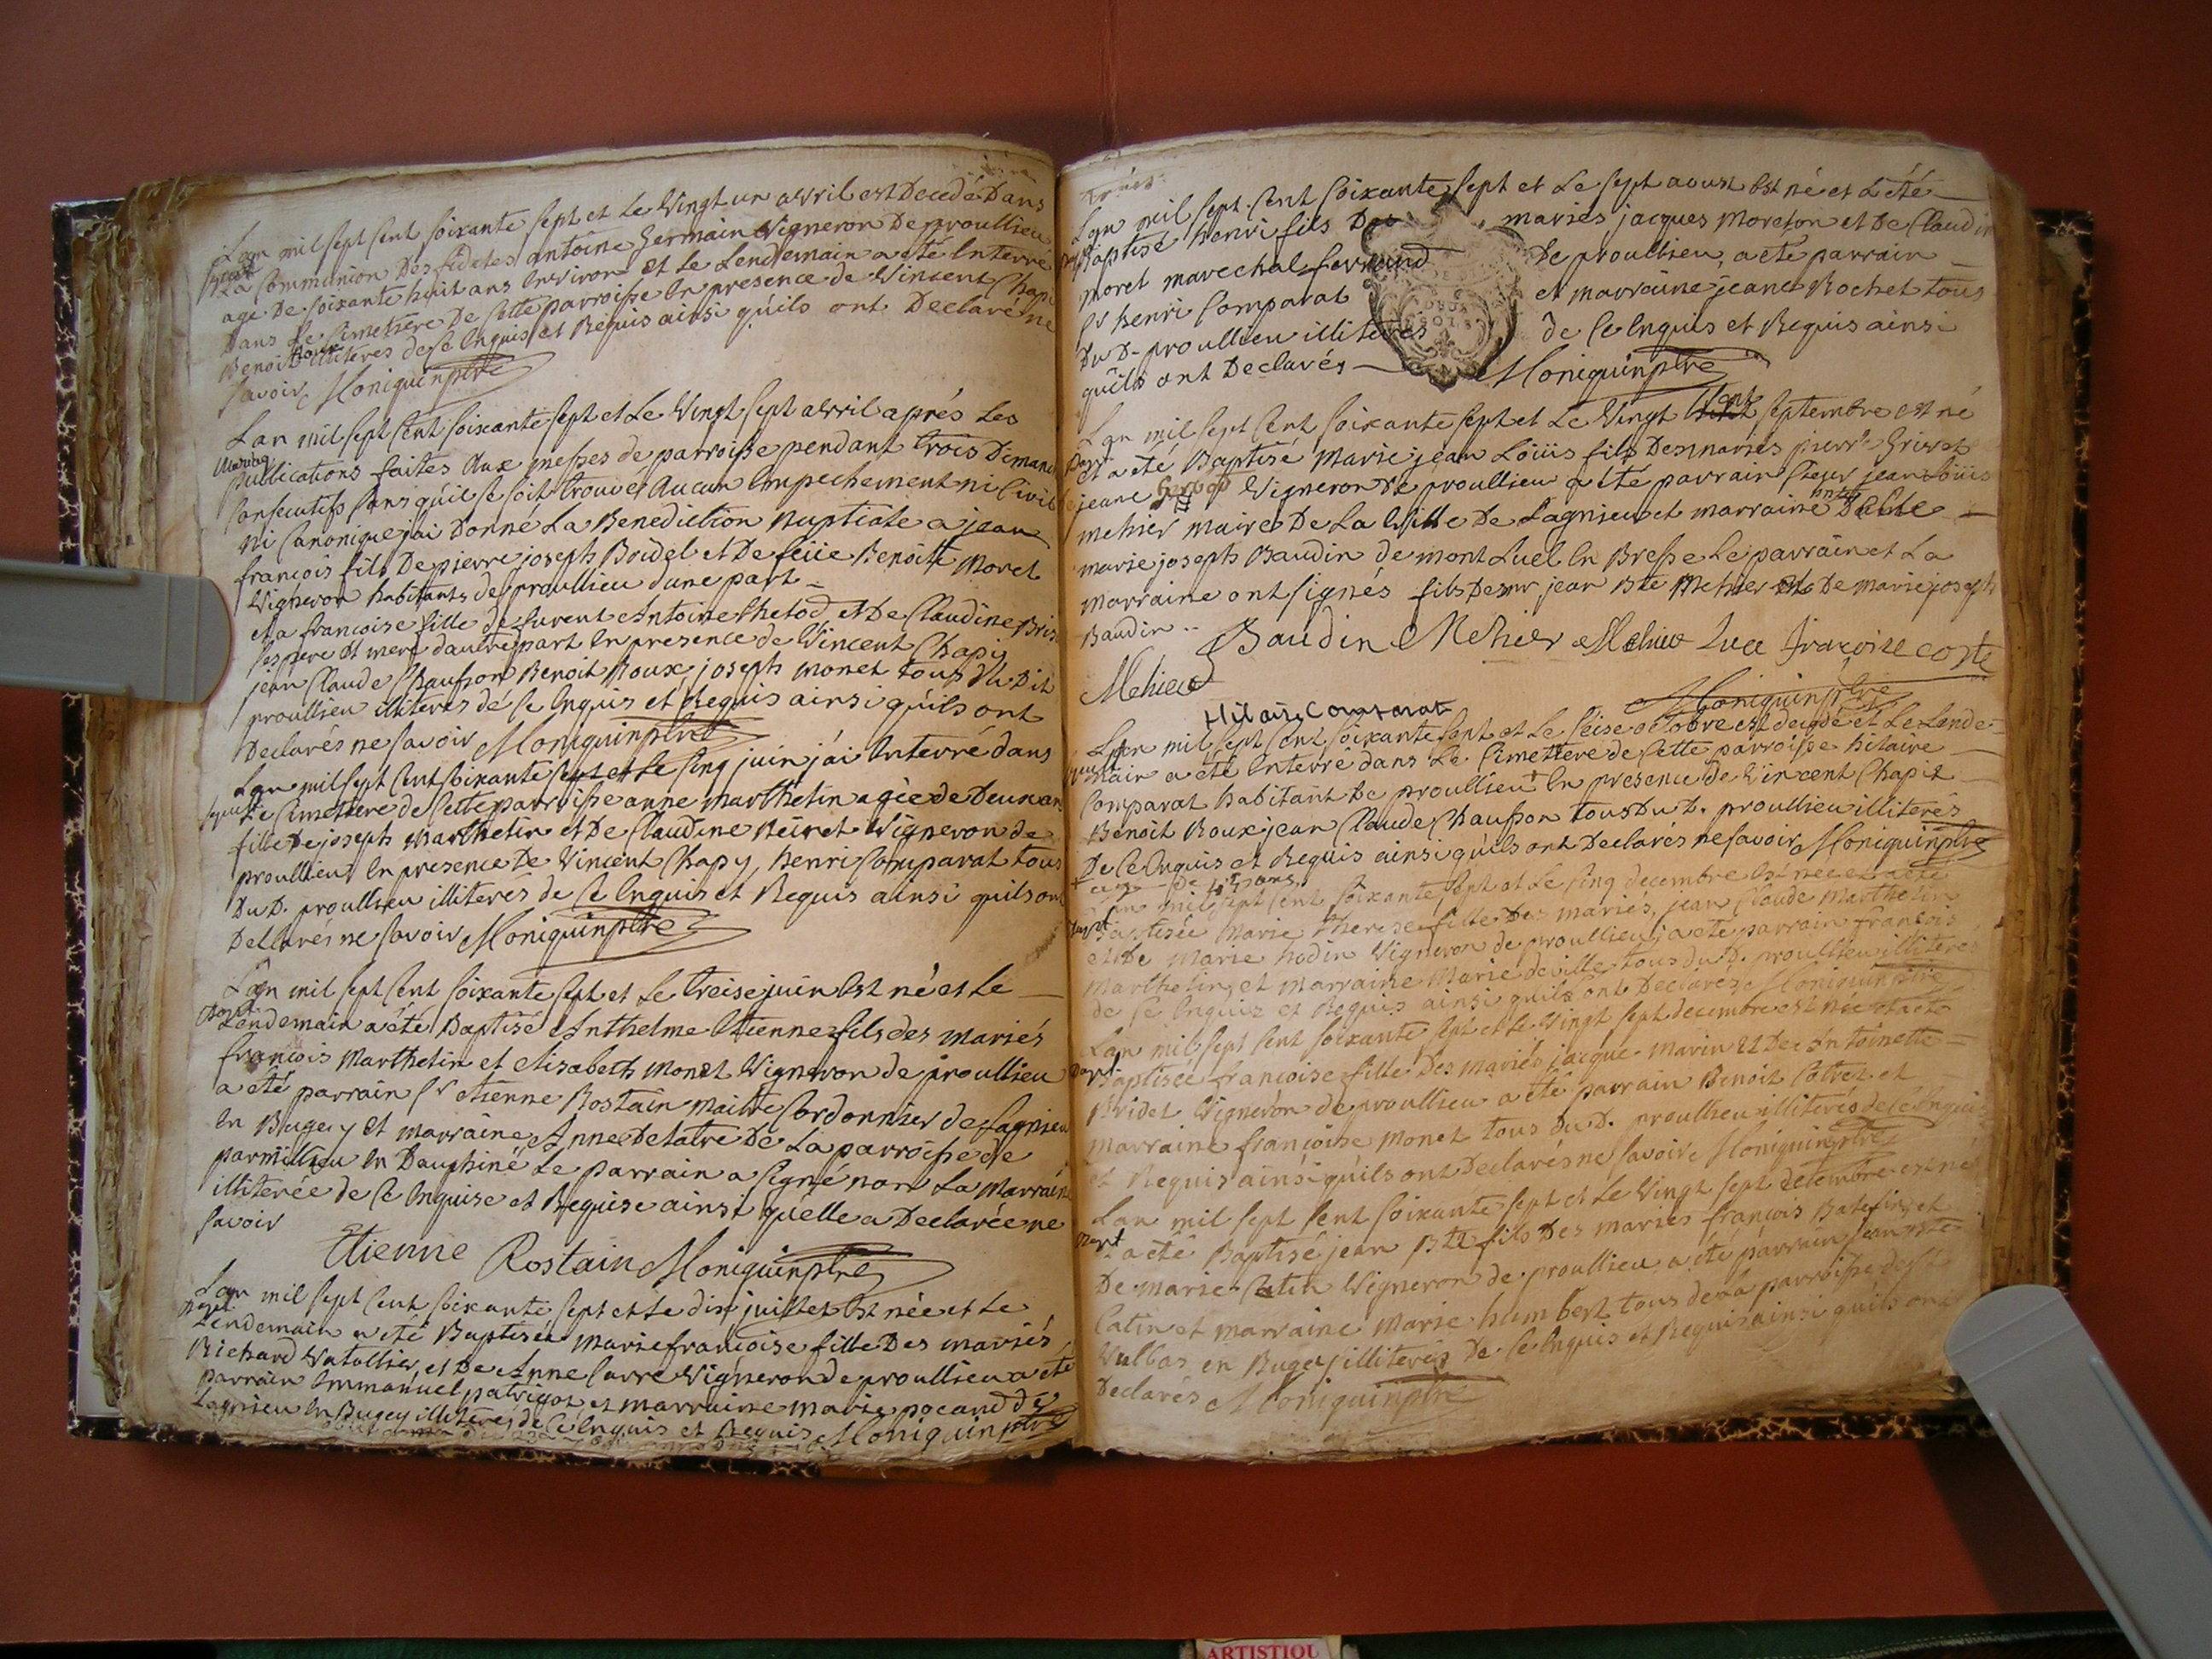 Lan mil sept cent soixante sept et le vingt un avril est decedé dans
la Communion des fideles antoine germain vigneron de proullieu
age de soixante huit ans environ et le lendemain a été enterré
dans le Cimetiere de cette parroisse en presence de vincent Chapi
Benoit Roux illiteres de ce enquis et Requis ainsi quils ont declaré ne
savoir Moniquin ptre
Lan mil sept cent soixante sept et le vingt sept avril aprés les
mariage
publications faites aux messes de parroisse pendant trois dimanc
consecutifs sans quil se soit trouvé aucun empechement ni civil
ni canonique jai donné la Benediction nuptiale a jean
francois fils de pierre joseph Boidel et de feüe Benoitte Moret
vigneron habitants de proullieu dune part
et a francoise fille de furent antoine Chetod et de Claudine
ses pere et mere dautre part en presence de vincent Chapi
jean Claude Chausson Benoit Roux joseph monet tous du dit
proullieu illiteres de ce enquis et Requis ainsi quils ont
declarés ne savoir Moniquin ptre
Lan mil sept cent soixante sept et le cinq juin jai enterré dans
le Cimetiere de cette parroisse anne marthelin agée de deux ans
fille de joseph Marthelin et de Claudine vigneron de
proullieu en presence de vincent Chapy, henri Comparat tous
du d. proullieu illiterés de ce enquis et Requis ainsi quils ont
declarés ne savoir Moniquin ptre
Lan mil sept cent soixante sept et le treise juin est né et le
Bapt
lendemain a été Baptisé Anthelme Etienne fils des mariés
francois Marthelin et elisabeth monet vigneron de proullieu
a été parrain sr etienne Rostain maitre Cordonnier de Lagnieu
en Bugey et marraine Anne Delatre de la parroisse de
parmillieu en dauphiné le parrain a signé non la marraine
illiterée de ce enquise et Requise ainsi quelle a declarée ne
savoir
Etienne Rostain Moniquin ptre
Lan mil sept cent soixante sept et le dix juillet est née et le
Bapt
lendemain a été Baptisée marie francoise fille des mariés
Richard vatellier et de Anne Carre vigneron de proullieu a été
parrain Emmanuel patrigot et marraine marie pocand de
Lagnieu en Bugey illiteres de ce enquis et Requis Moniquin ptre
Lan mil sept cent soixante sept et le sept aoust est né et a été
Baptisé henri fils des mariés jacques Moreton et de Claudine
moret marechal ferrand de proullieu, a été parrain
sr henri Comparat et marraine jeane Rochet tous
du d. proullieu illiteres de ce enquis et Requis ainsi
quils ont declarés Moniquin ptre
Lan mil sept cent soixante sept et le vingt septembre est né
Bapt
et a été Baptisé Marie jean Loüis fils des mariés pierre Grivet
jeane vigneron de proullieu a été parrain sieur jean Loüis
mehier maire de la ville de Lagnieu et marraine delle
marie joseph Baudin de montluel en Bresse le parrain et la
marraine ont signés fils de mr jean Bte Mehier et de marie joseph
Baudin
Baudin Mehier Mehier Luce francoise coste
Mehier
Moniquin ptre
Hilaire Comparat
Lan mil sept cent soixante sept et le seise octobre est decedé et le lende
main a été enterré dans le Cimettere de cette parroisse hilaire
Comparat habitant de proullieu + en presence de vincent Chapit
Benoit Roux jean Claude Chausson tous du d. proullieu illiterés
de ce enquis et Requis ainsi quils ont declarés ne savoir Moniquin ptre
Lan mil sept cent soixante sept et le cinq decembre est née et a été
Bapt
Baptisée Marie therese fille des mariés, jean Claude Marthelin
et de Marie hodin vigneron de proullieu, a été parrain francois
marthelin, et marraine Marie deville tous du d. proullieu illiteres
de ce enquis et Requis ainsi quils ont declarés Moniquin ptre
Lan mil sept cent soixante sept et le vingt sept decembre est née et a été
Bapt
Baptisee francoise fille des mariés jacque Marin et de Antoinette
Bridet vigneron de proullieu a été parrain Benoit Cottret et
marraine francoise Monet tous du d. proullieu illiterés de ce enquis
et Requis ainsi quils ont declarés ne savoir Moniquin ptre
Lan mil sept cent soixante sept et le vingt sept decembre est né
Bapt
et a été Baptisé jean Bte fils des mariés françois Batefin et
de marie Catin vigneron de proullieu a été parrain jean Bte
Catin et marraine Marie humbert tous de la parroisse de st
vulbas en Bugey illiterés de ce enquis et Requis ainsi quils ont
declarés Moniquin ptre
ARTISTIQU